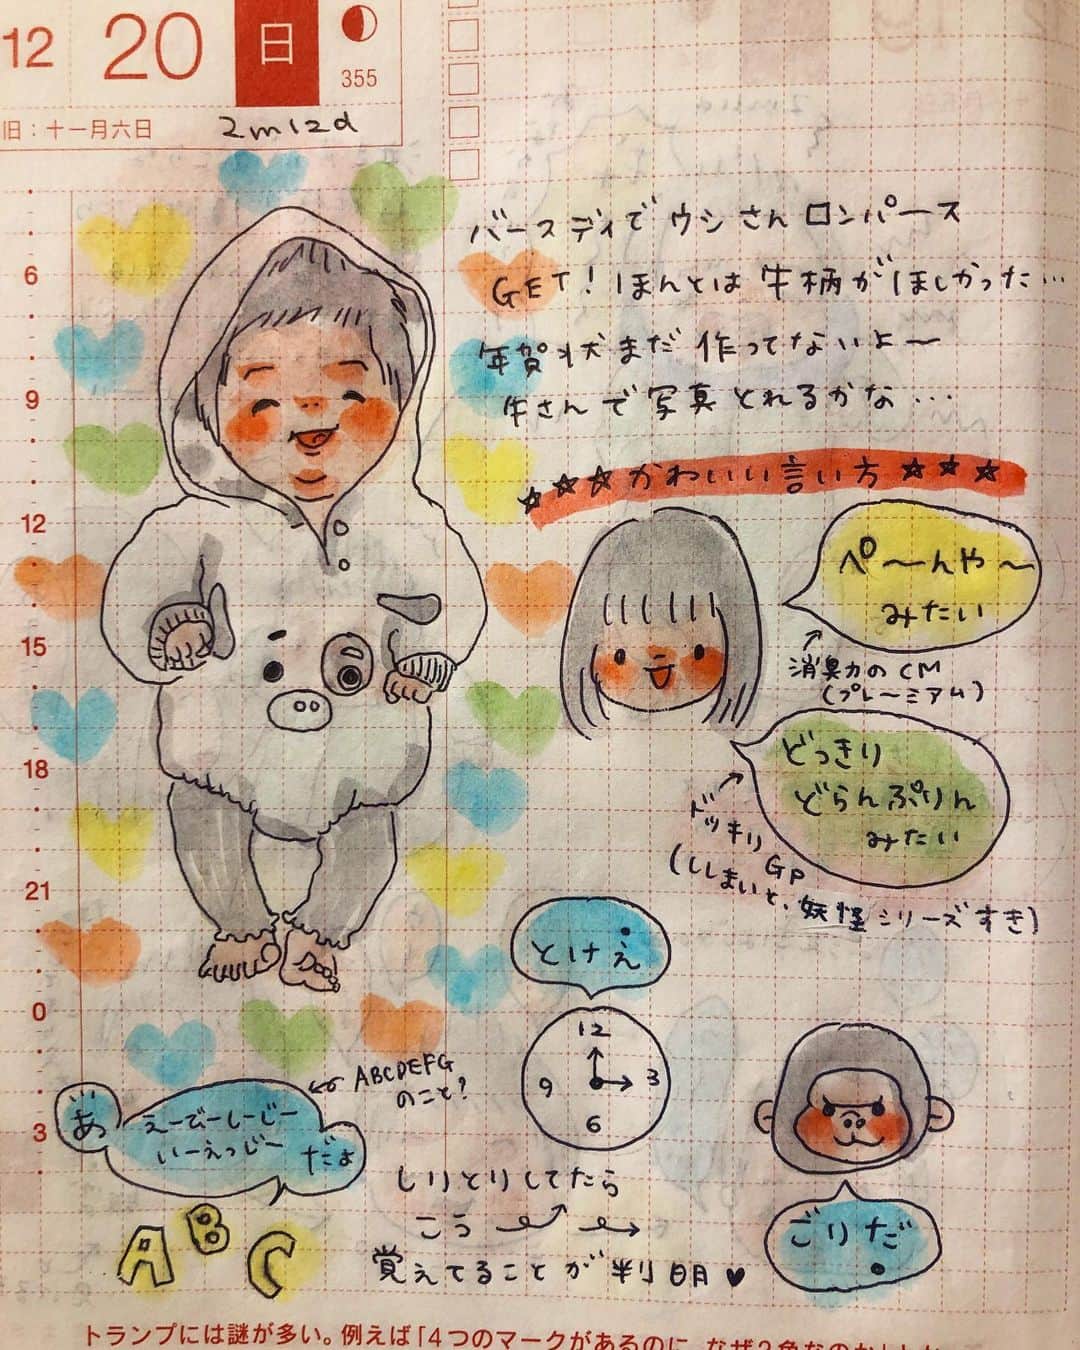 12 20 日
355
旧：十一月六日 2m12d
バースディでウシさんロンパース
GET！ほんとは牛柄がほしかった…
年賀状まだ作ってないよ〜
牛さんで写真とれるかな…
☆☆☆かわいい言い方☆☆☆
ぺ〜んや〜
みたい
消臭力のCM
(プレ〜ミアム)
どっきり
どらんぷりん
みたい
ドッキリGP
(ししまいと、妖怪シリーズすき)
とけえ
12
9 3
6
ABCDEFG
のこと？
あ
えーびーしーじー
いーえっじー
だよ
A B C
しりとりしてたら
こう
覚えてることが判明♥
ごりだ
6
9
12
15
18
21
0
3
トランプには謎が多い。例えば「4つのマークがあるのに、なぜ2色なのか」